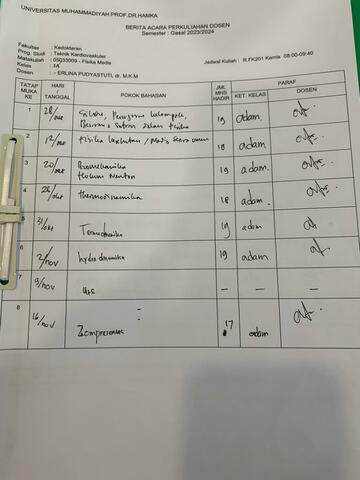 UNIVERSITAS MUHAMMADIYAH PROF.DR.HAMKA
BERITA ACARA PERKULIAHAN DOSEN
Semester : Gasal 2023/2024
Fakultas : Kedokteran
Prog. Studi : Teknik Kardiovaskuler
Matakuliah : 05G33009 - Fisika Medis
Kelas : 3A
Dosen : - ERLINA PUDYASTUTI, dr. M.K.M
Jadwal Kuliah : R.FK201 Kamis 08:00-09:40
TATAP MUKA KE HARI / TANGGAL POKOK BAHASAN JML MHS HADIR KET. KELAS PARAF DOSEN
1 28/ 19 adam.
Besaran Satuan dalam
2 12/okt Fisika 18 adam
3 20/okt Biomekanika 19 adam.
Hukum Newton
4 26/okt thermodinamika 18 adam
5 31/okt 19 adam
6 2/nov hydrodinamika 19 adam
7 9/nov UTS — —
8 16/nov 17 adam